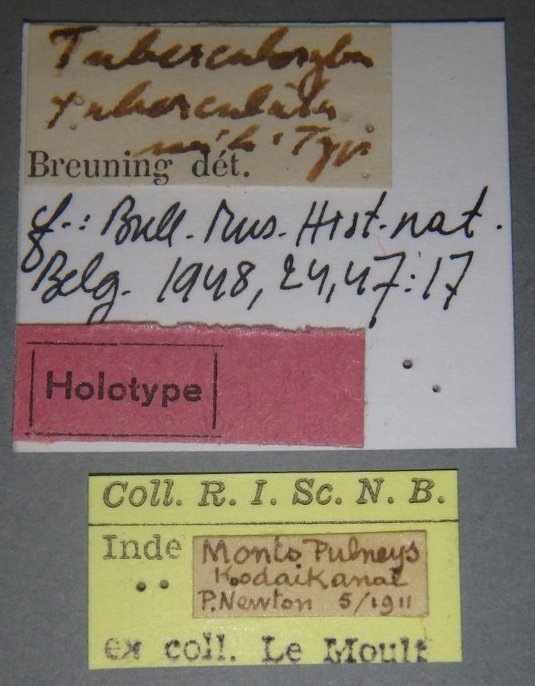 mihi Typ
Breuning dét.
cf.: Bull. Mus. Hist. nat.
Belg. 1948, 24, 47: 17
Holotype
Coll. R. I. Sc. N. B.
Inde
Monts Pulneys
Kodaikanal
P. Newton 5/1911
ex coll. Le Moult